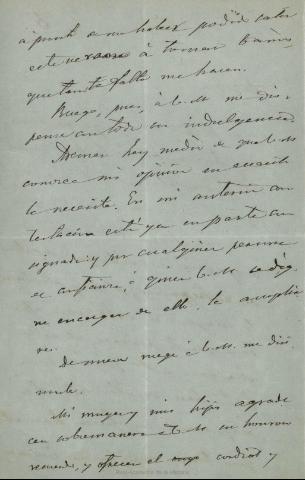 á punto de no haber podido salir
este verano á tomar baños,
que tanta falta me hacen.
Ruego, pues, á V. M. me dis-
pense con toda su indulgencia.
Ademas hay medio de que V. M.
conozca mi opinion en cuanto
lo necesite. En mi anterior con-
testacion está ya en parte con-
signada: y por cualquier persona
de confianza, á quien V. M. se dig-
ne encargar de ello, la amplia
ré.
De nuevo ruego á V. M. me disi-
mule.
Mi muger y mis hijos agrade-
cen sobremanera á V. M. su honroso
recuerdo, y ofrecen el mas cordial y